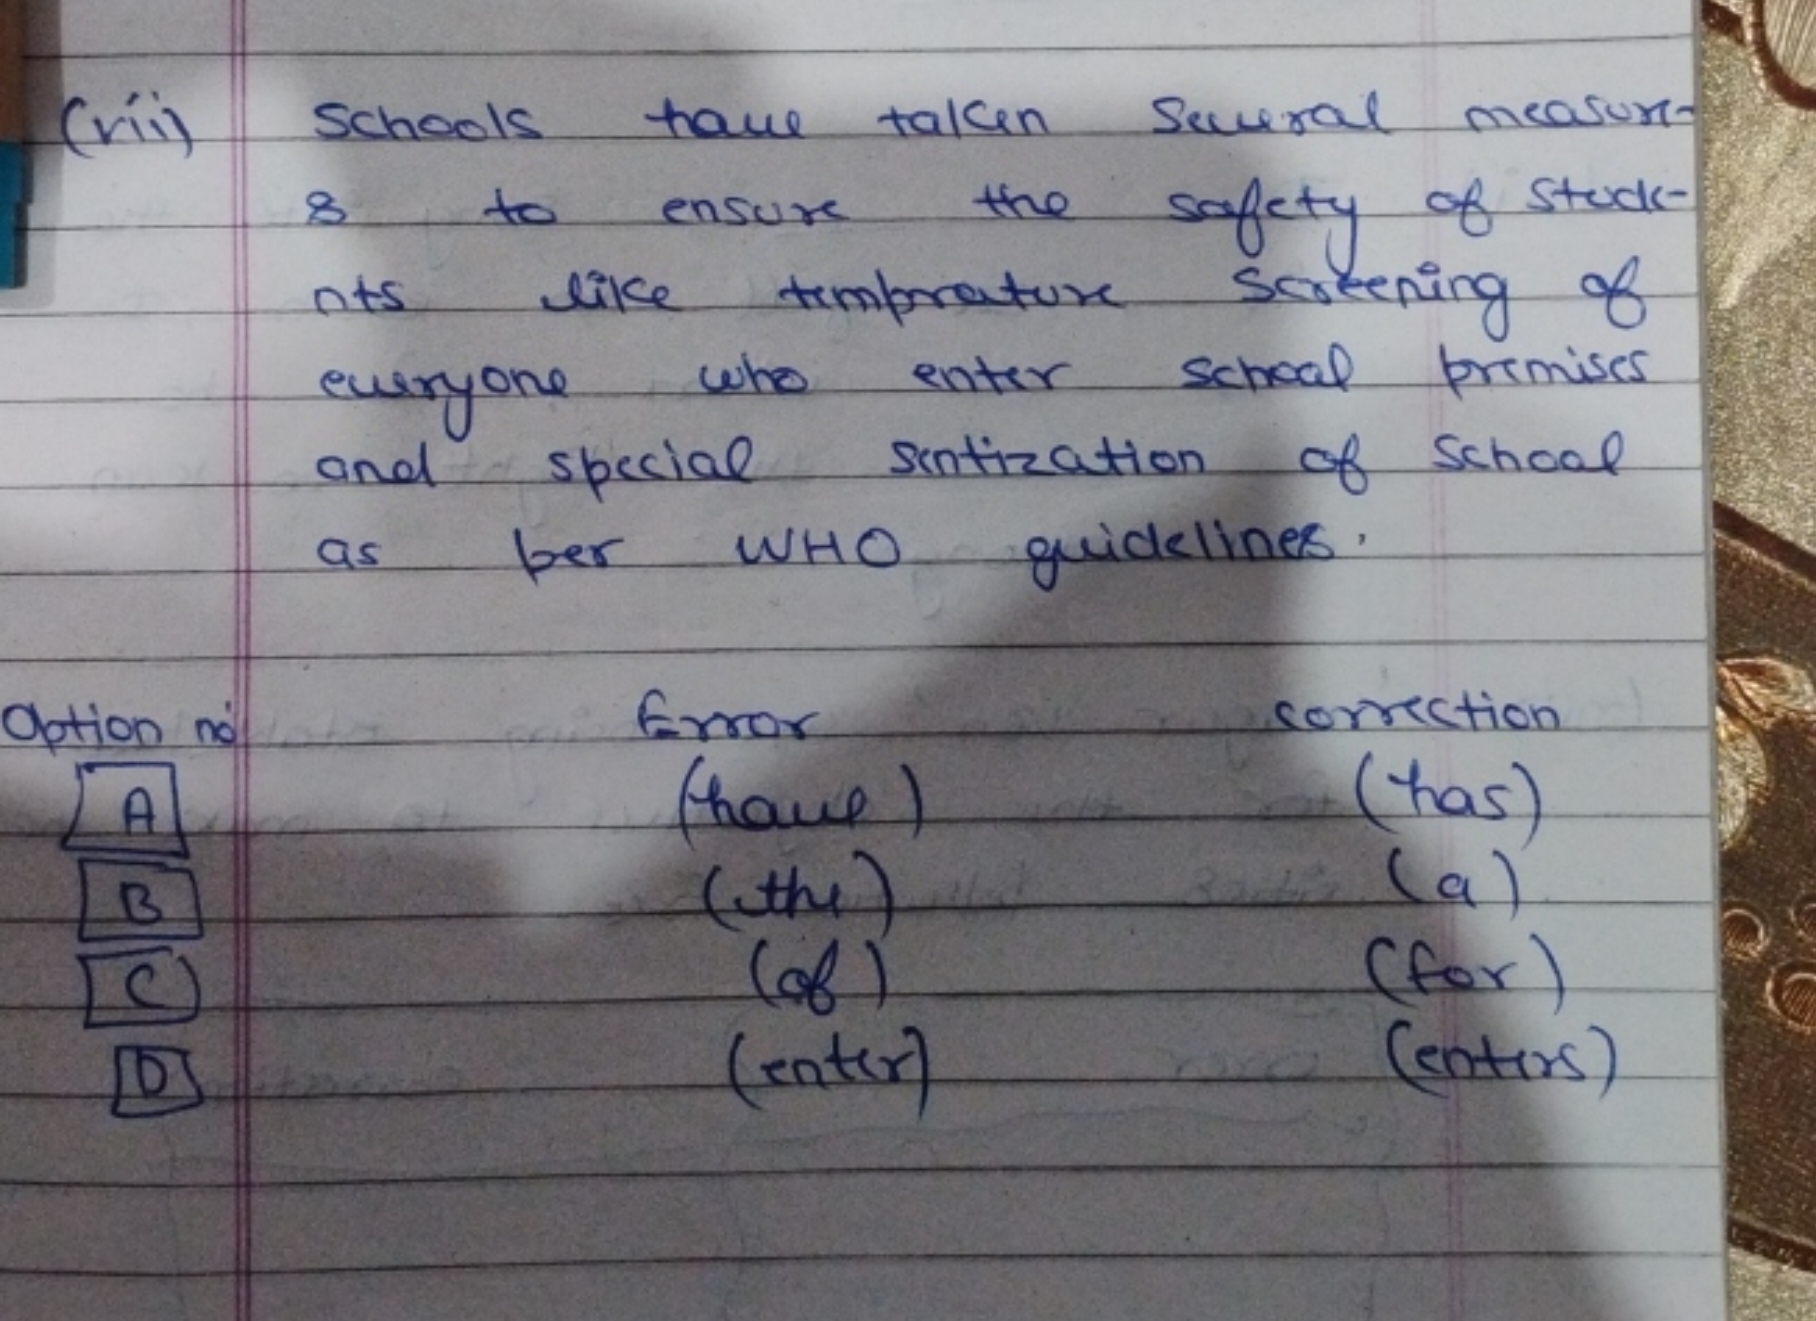 (vii) Schools have taken Several measure-
s to ensure the safety of Stude-
nts like temprature Screening of
everyone who enter school premises
and special sentization of School
as per WHO guidelines.
Option no Error correction
A (have) (has)
B (the) (a)
C (of) (for)
D (enter) (enters)